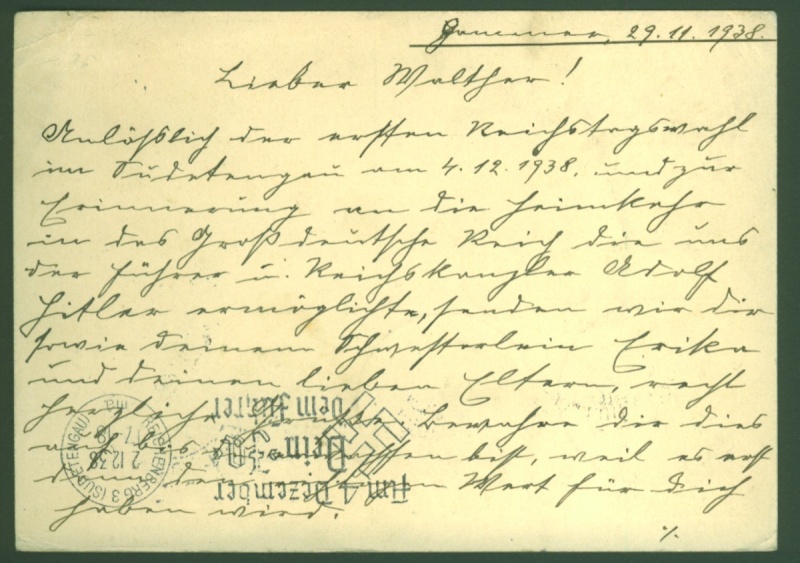 29.11.1938.
Lieber Walther!
Anläßlich der ersten Reichstagswahl
im Sudetengau am 4.12.1938. und zur
Erinnerung an die Heimkehr
in das Großdeutsche Reich die uns
der Führer u. Reichskanzler Adolf
Hitler ermöglichte, senden wir dir
sowie deinem Schwesterlein Erika
und deinen lieben Eltern, recht
herzliche Bewahre dir dies
auf bis bist, weil es erst
dann den Wert für dich
haben wird.
./.
Am 4. Dezember
Dein Ja
dem Führer
REICHENBERG 3 (SUDETENGAU)
2.12.38